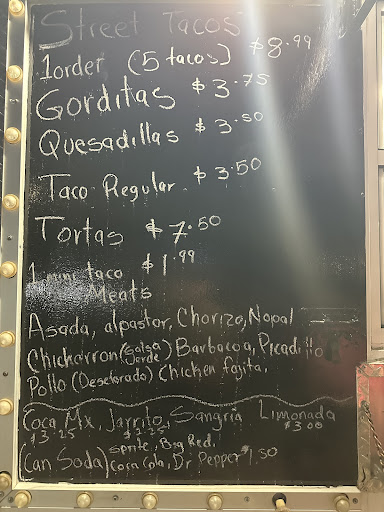 Street Tacos
1 order (5 tacos) $8.99
Gorditas $3.75
Quesadillas $3.50
Taco Regular $3.50
Tortas $7.50
1 mini taco $1.99
Meats
Asada, alpastor, Chorizo, Nopal
Chicharron (Salsa Verde) Barbacoa, Picadillo
Pollo (Desebrado) Chicken fajita,
Coca Mx, Jarrito, Sangria Limonada
$3.25 $3.00
Sprite, Big Red,
(Can Soda) Coca Cola, Dr Pepper $1.50